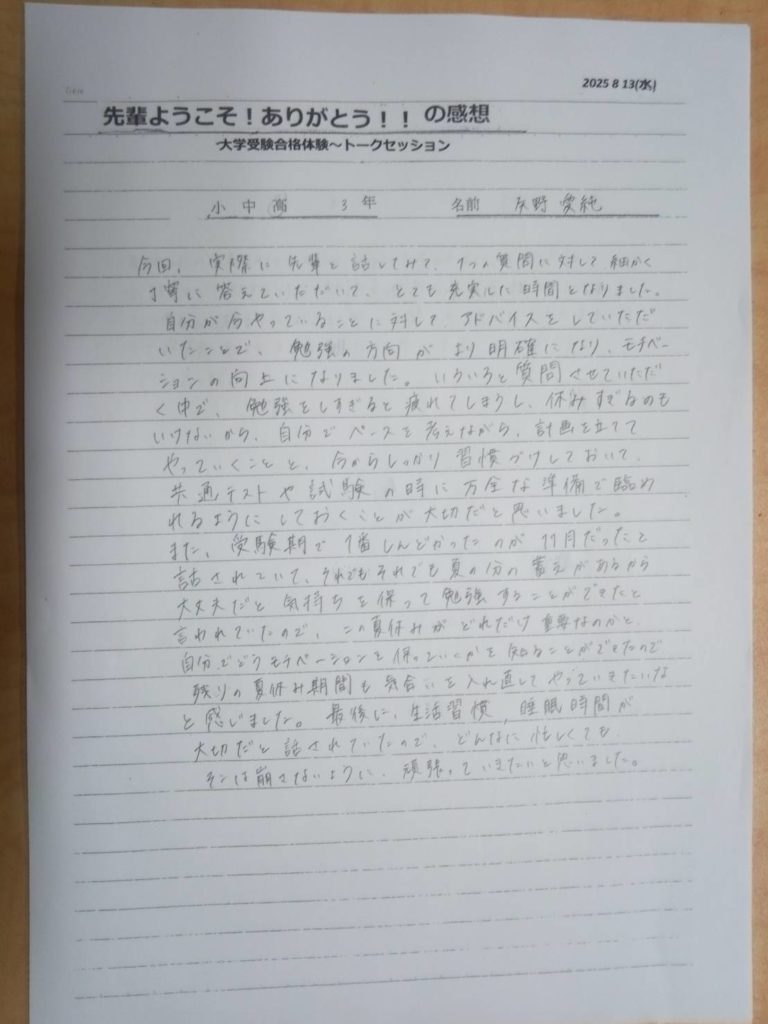 2025 8 13(水)
先輩ようこそ！ありがとう！！の感想
大学受験合格体験～トークセッション
小 中 高 3 年 名前 灰野 愛純
今回、実際に先輩と話してみて、1つの質問に対して細かく
丁寧に答えていただいて、とても充実した時間となりました。
自分が今やっていることに対して アドバイスをしていただ
いたことで、勉強の方向がより明確になり、モチベー
ションの向上になりました。いろいろと質問させていただ
く中で、勉強をしすぎると疲れてしまうし、休みすぎるのも
いけないから、自分でペースを考えながら、計画を立てて
やっていくことと、今からしっかり習慣づけしておいて、
共通テストや試験の時に万全な準備で臨め
れるようにしておくことが大切だと思いました。
また、受験期で1番しんどかったのが11月だったと
話されていて、それでもそれでも夏の分の蓄えがあるから
大丈夫だと気持ちを保って勉強することができたと
言われていたので、この夏休みがどれだけ重要なのかと、
自分でどうモチベーションを保っていくかを知ることができたので
残りの夏休み期間も気合いを入れ直してやっていきたいな
と感じました。最後に、生活習慣、睡眠時間が
大切だと話されていたので、どんなに忙しくても
そこは崩さないように、頑張っていきたいと思いました。